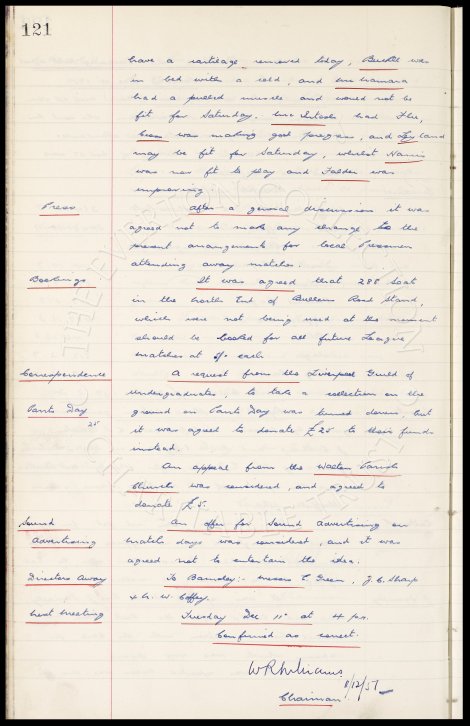 121
have a cartilage removed today, Buckle was
in bed with a cold, and McNamara
had a pulled muscle and would not be
fit for Saturday. McIntosh had Flu,
Cross was making good progress, and
may be fit for Saturday, whilst Harris
was now fit to play and Falder was
improving.
Press
After a general discussion it was
agreed not to make any change to the
present arrangements for local Pressmen
attending away matches.
Bookings
It was agreed that 288 seat
in the North End of Bullens Road Stand,
which were not being used at the moment
should be booked for all future League
matches at 5/- each.
Correspondence
A request from the Liverpool Guild of
Undergraduates, to take a collection on the
Panto Day
ground on Panto Day was turned down, but
25
it was agreed to donate £25 to their funds
instead.
An appeal from the Walton Parish
Church was considered, and agreed to
donate £5.
Sound
Advertising
An offer for Sound Advertising on
match days was considered, and it was
agreed not to entertain the idea.
Directors Away
To Barnsley:- Messrs C. Green, J.C. Sharp
& W. Coffey.
Next Meeting
Tuesday Dec 11th at 4 pm.
Confirmed as correct.
W R Williams
Chairman 11/12/51
THE EVERTON COLLECTION